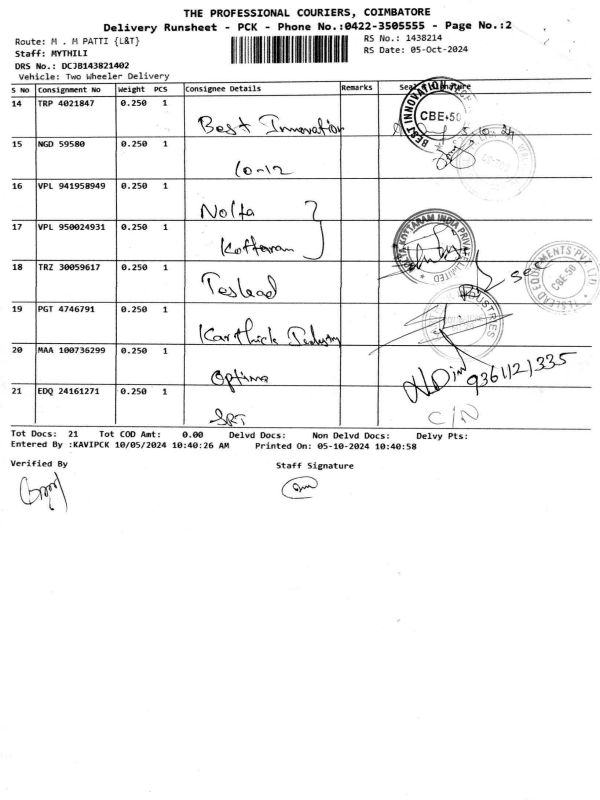 THE PROFESSIONAL COURIERS, COIMBATORE
Delivery Runsheet - PCK - Phone No.:0422-3505555 - Page No.:2
Route: M . M PATTI {L&T}
RS No.: 1438214
Staff: MYTHILI
RS Date: 05-Oct-2024
DRS No.: DCJB143821402
Vehicle: Two Wheeler Delivery
S No Consignment No Weight PCS Consignee Details Remarks Seal Signature
14 TRP 4021847 0.250 1
Best Innovation
BEST INNOVATION
CBE-50
15 NGD 59580 0.250 1
10-12
16 VPL 941958949 0.250 1
Nolta
17 VPL 950024931 0.250 1
Kottaram
KOTTARAM INDIA PRIVATE LIMITED
18 TRZ 30059617 0.250 1
Teslead
TESLEAD EQUIPMENTS PVT LTD
CBE-50
19 PGT 4746791 0.250 1
Karthick Industry
20 MAA 100736299 0.250 1
Optima
9361121335
21 EDQ 24161271 0.250 1
SRT
C/N
Tot Docs: 21 Tot COD Amt: 0.00 Delvd Docs: Non Delvd Docs: Delvy Pts:
Entered By :KAVIPCK 10/05/2024 10:40:26 AM Printed On: 05-10-2024 10:40:58
Verified By
Staff Signature